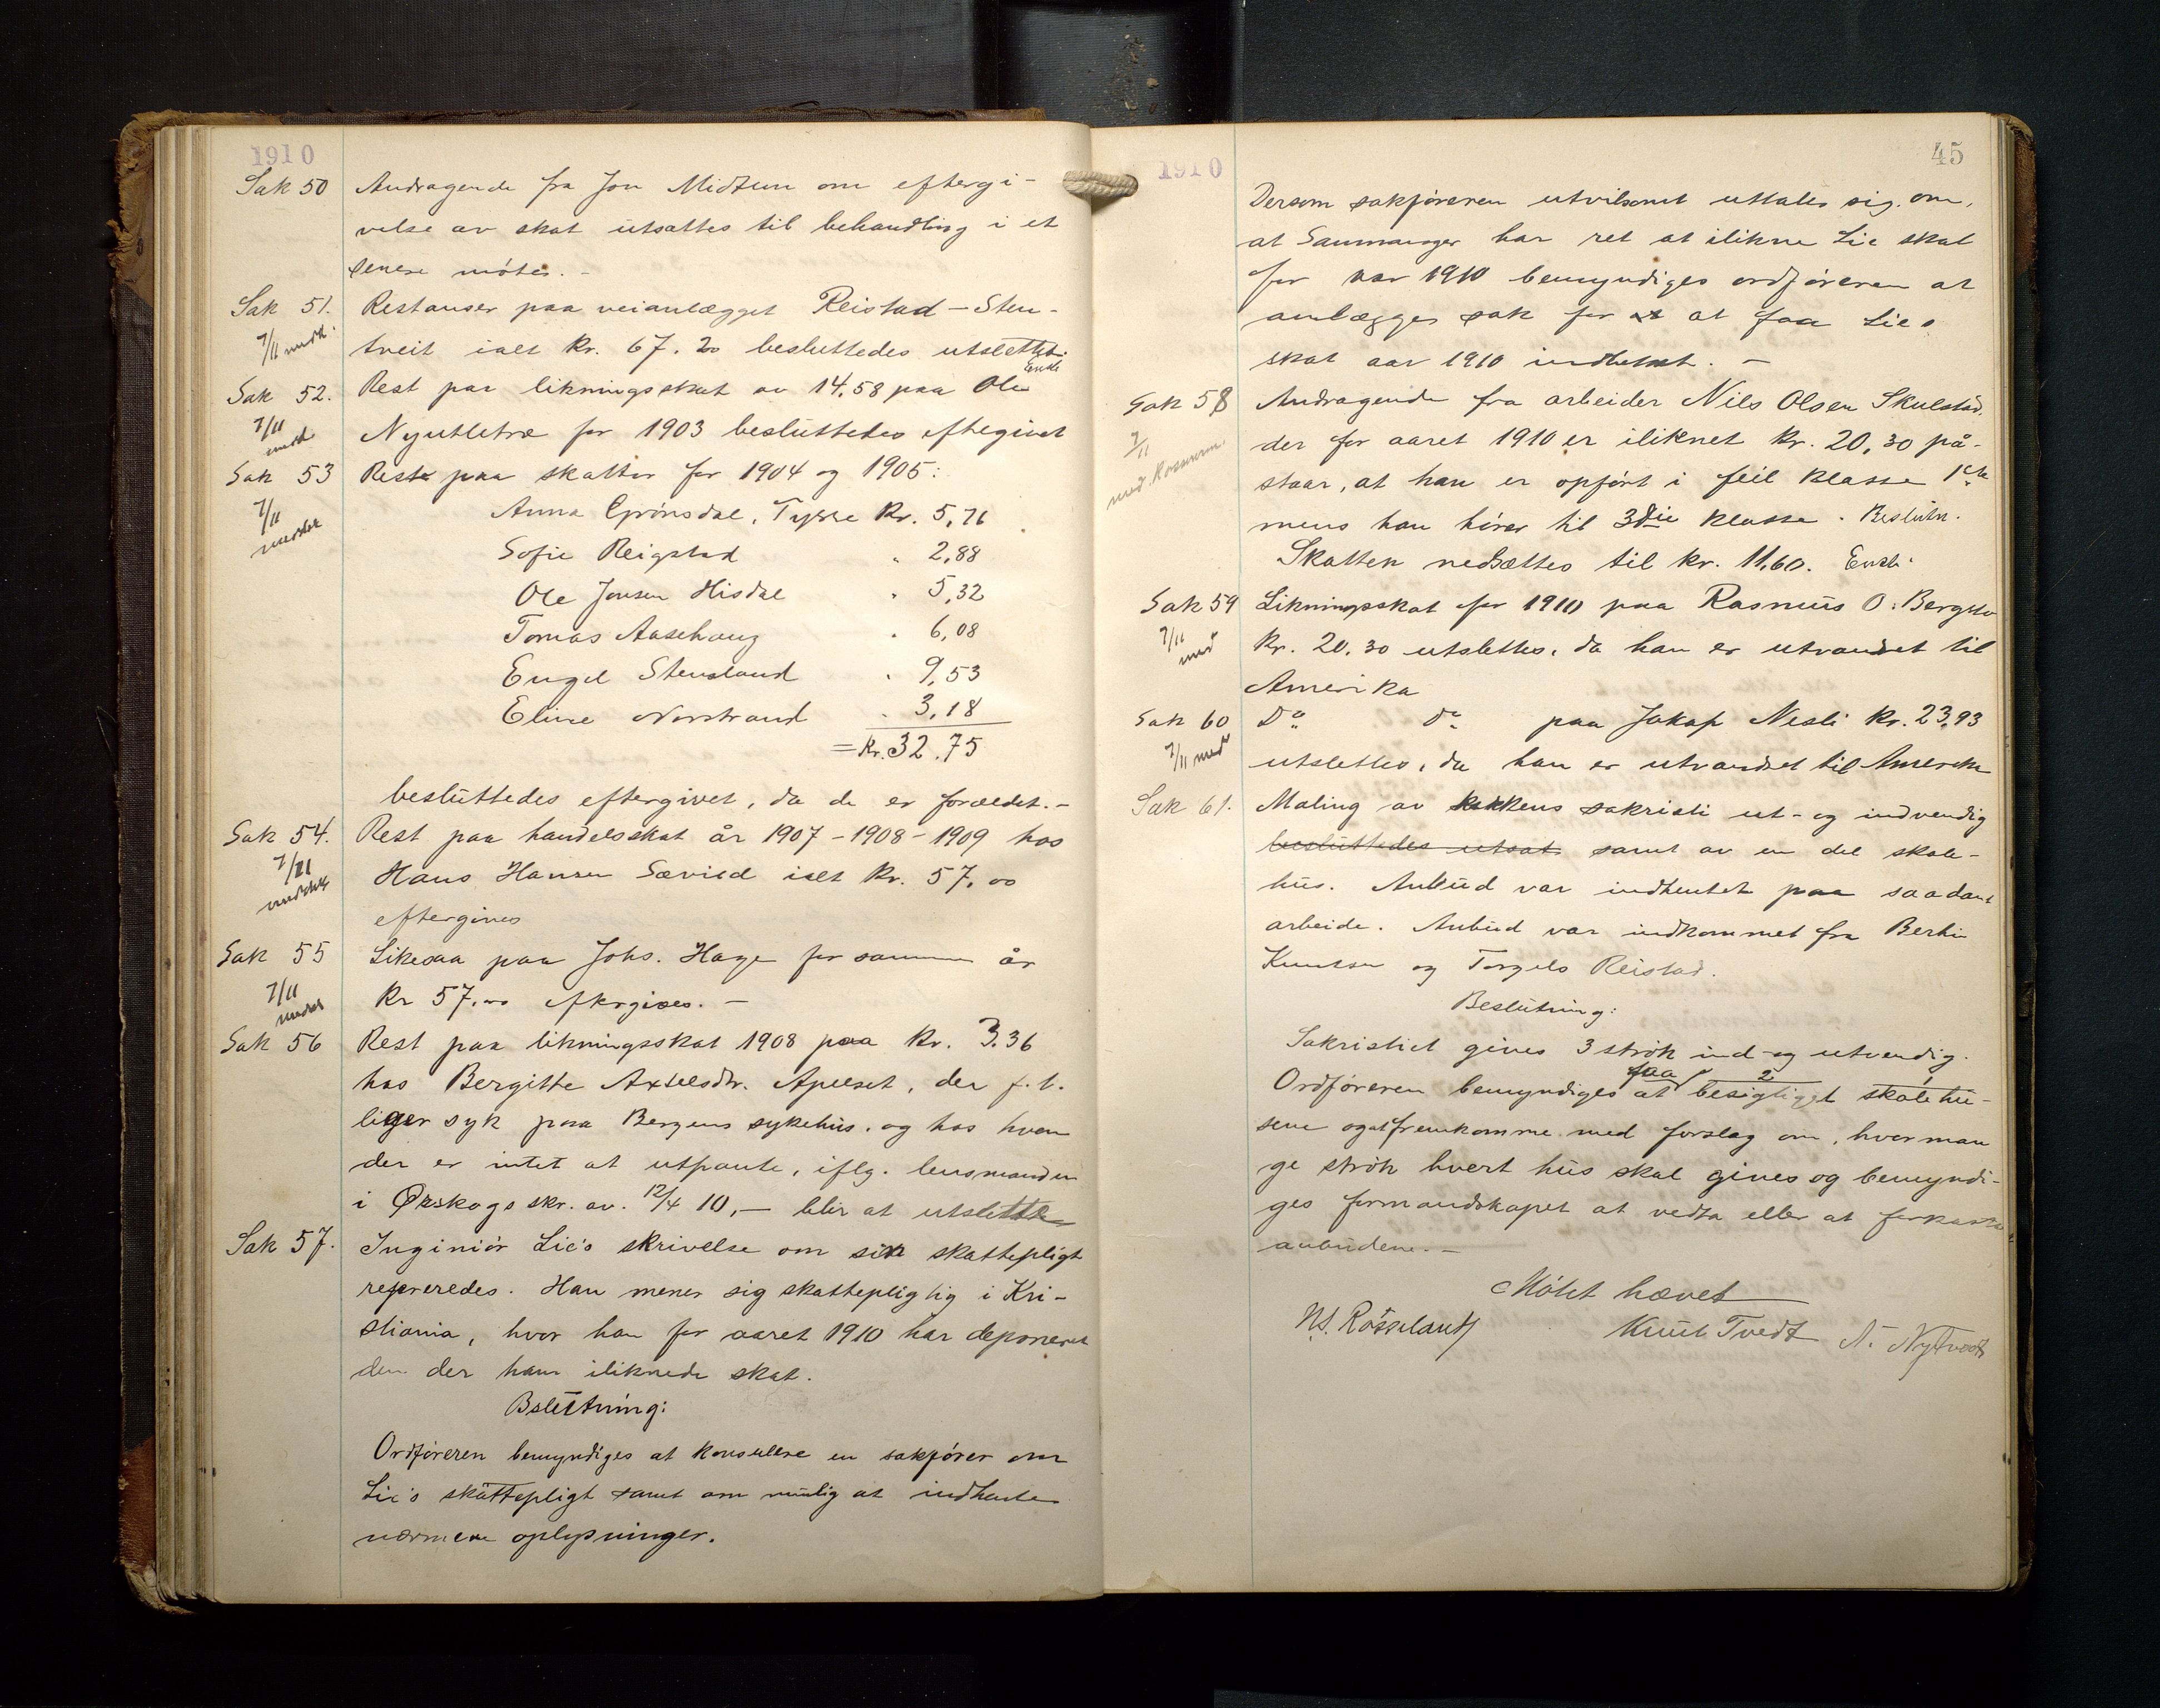 1910
Sak 50 Andragende fra Jon Midtun om eftergi-
velse av skat utsattes til behandling i et
senere møte. -
Sak 51. Restanser paa veianlægget Reistad - Sten-
7/11 medt.
tveit ialt kr. 67.20 besluttedes utslettet.
Enst.
Sak 52. Rest paa likningsskat av 14,58 paa Ole
7/11 medt
Nyutletræ for 1903 besluttedes eftergivet
Sak 53 Rest paa skatter for 1904 og 1905:
7/11 meddelt
Anna Grønsdal, Tysse Kr. 5,76
Sofie Reigstad " 2,88
Ole Jonsen Hisdal " 5,32
Tomas Aasehaug " 6,08
Engel Stensland " 9,53
Eline Norstrand " 3,18
= Kr. 32,75
besluttedes eftergivet, da de er forældet. -
Sak 54. Rest paa handelsskat år 1907 - 1908 - 1909 hos
7/11 meddelt
Hans Hansen Sævild ialt kr. 57,00
eftergives
Sak 55 Likesaa paa Johs. Hage for samme år
7/11 meddelt
Kr 57.00 eftergives. -
Sak 56 Rest paa likningsskat 1908 paa kr. 3.36
hos Bergitte Axselsdtr. Apelset, der f. t.
liger syk paa Bergens sykehus, og hos hvem
der er intet at utpante, iflg. lensmanden
i Ørskogs skr. av. 12/4 10, - blir at utslette
Sak 57. Inginiør Lie's skrivelse om sin skattepligt
refereredes. Han mener sig skattepligtig i Kri-
stiania, hvor han for aaret 1910 har deponeret
den der ham iliknede skat.
Bslutning:
Ordføreren bemyndiges at konsulere en sakfører om
Lie's skattepligt samt om mulig at indhente
nærmere oplysninger.
1910
45
Dersom sakføreren utvilsomt uttaler sig om,
at Samnanger har ret at ilikne Lie skat
for aar 1910 bemyndiges ordføreren at
anlægge sak for at at faa Lies
skat aar 1910 indbetalt. -
Sak 58 Andragende fra arbeider Nils Olsen Skulstad,
7/11
der for aaret 1910 er iliknet kr. 20,30 på-
staar, at han er opført i feil klasse 1ste
mens han hører til 3die klasse. Beslutn.
Skatten nedsættes til kr. 11,60. Enst.
Sak 59 Likningsskat for 1910 paa Rasmus O. Bergstø
7/11 med
Kr. 20,30 utslettes, da han er utvandret til
Amerika
Sak 60 Do do paa Jakop Nesli kr. 23,93
7/11 medt
utslettes, da han er utvandret til Amerika
Sak 61. Maling av kirkens sakristi ut- og indvendig
besluttedes utsat samt av en del skole-
hus. Anbud var indhentet paa saadant
arbeide. Anbud var indkommet fra Bertin
Knutsen og Torgils Reistad.
Beslutning:
Sakristiet gives 3 strøk ind- og utvendig.
Ordføreren bemyndiges at faa besigtiget skolehu-
sene og at fremkomme med forslag om, hvor man
ge strøk hvert hus skal gives og bemyndi-
ges formandskapet at vedta eller at forkaste
anbudene. -
Møtet hævet
N. J. Røsseland Knut Tvedt N. Nytvedt